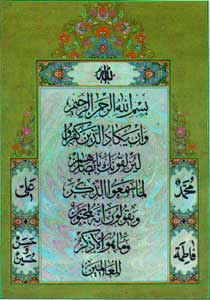 الله
بسم الله الرحمن الرحيم
وان يكاد الذين كفروا
ليزلقونك بابصارهم
لما سمعوا الذكر
ويقولون انه لمجنون
وما هو الا ذكر
للعالمين
محمد
علی
فاطمة
حسن
حسین